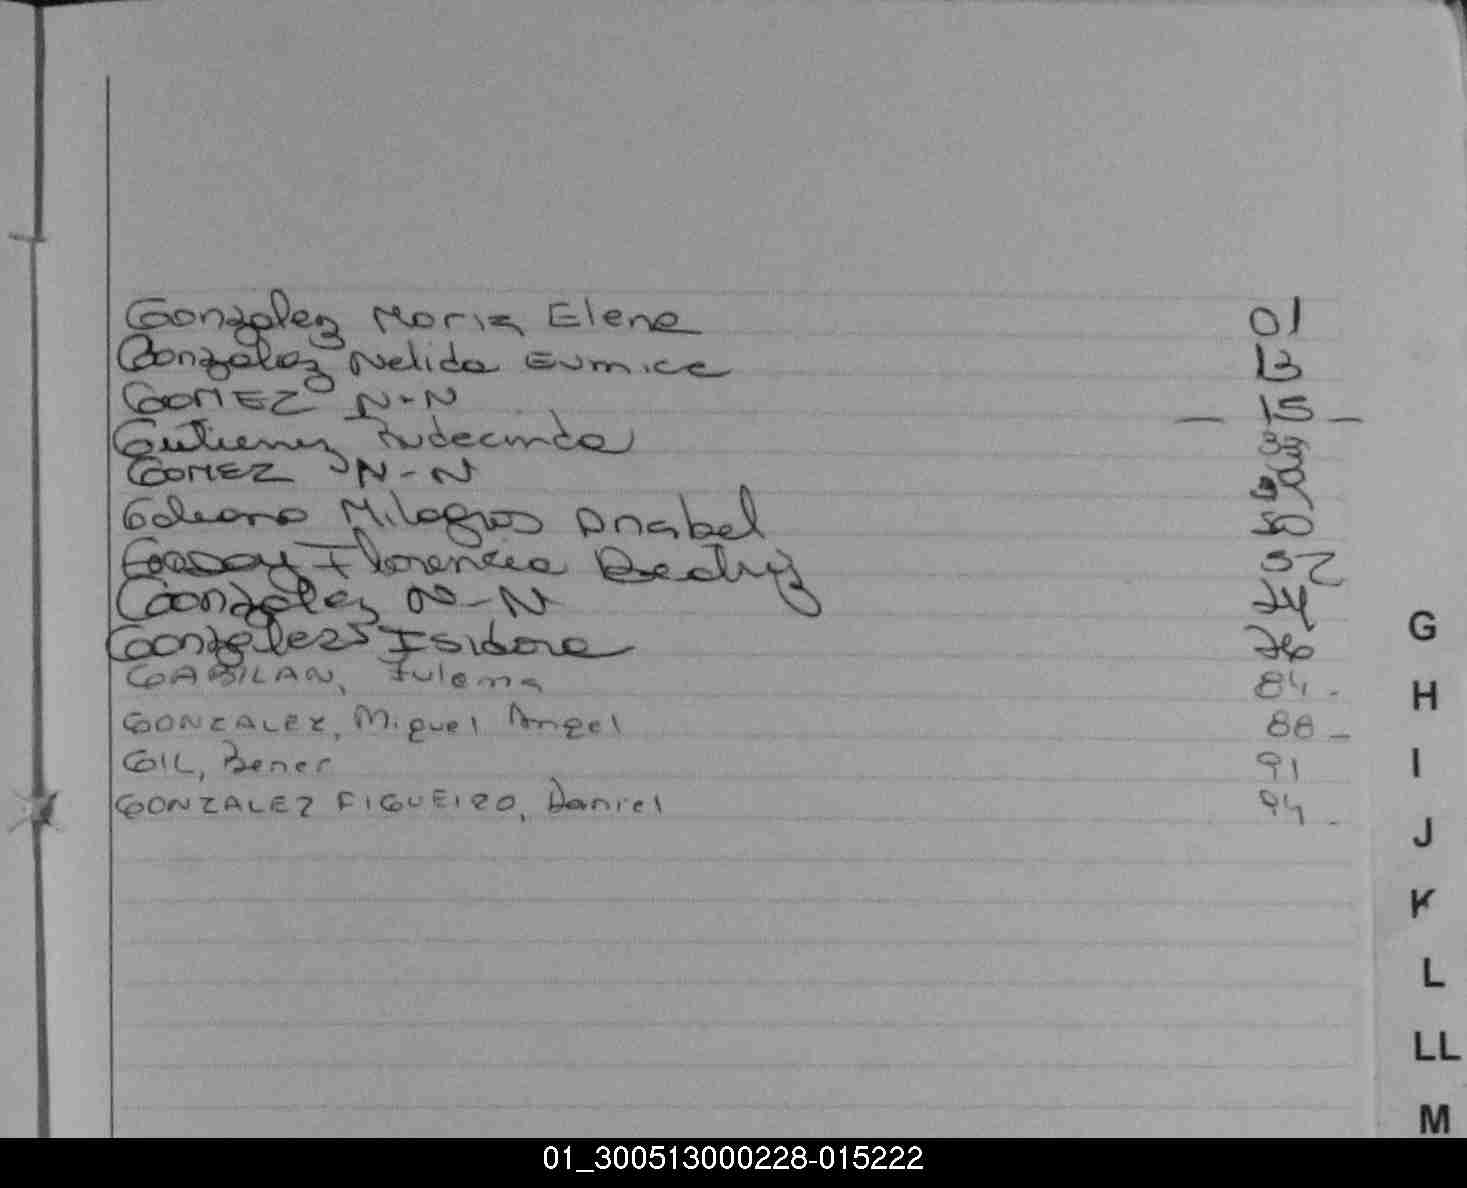 Gonzalez Maria Elena 01
Gonzalez Nelida Eumice 13
GOMEZ N-N — 15 —
Gutierrez Rudecinda
GOMEZ N-N
Milagros Anabel 50
Florencia Beatriz 52
Gonzalez N-N 74
Gonzalez Isidora 76
GABILAN, Zulema 84 -
GONZALEZ, Miguel Angel 88 -
GIL, Bener 91
GONZALEZ FIGUEIRO, Daniel 94 -
G
H
I
J
K
L
LL
M
01_300513000228-015222